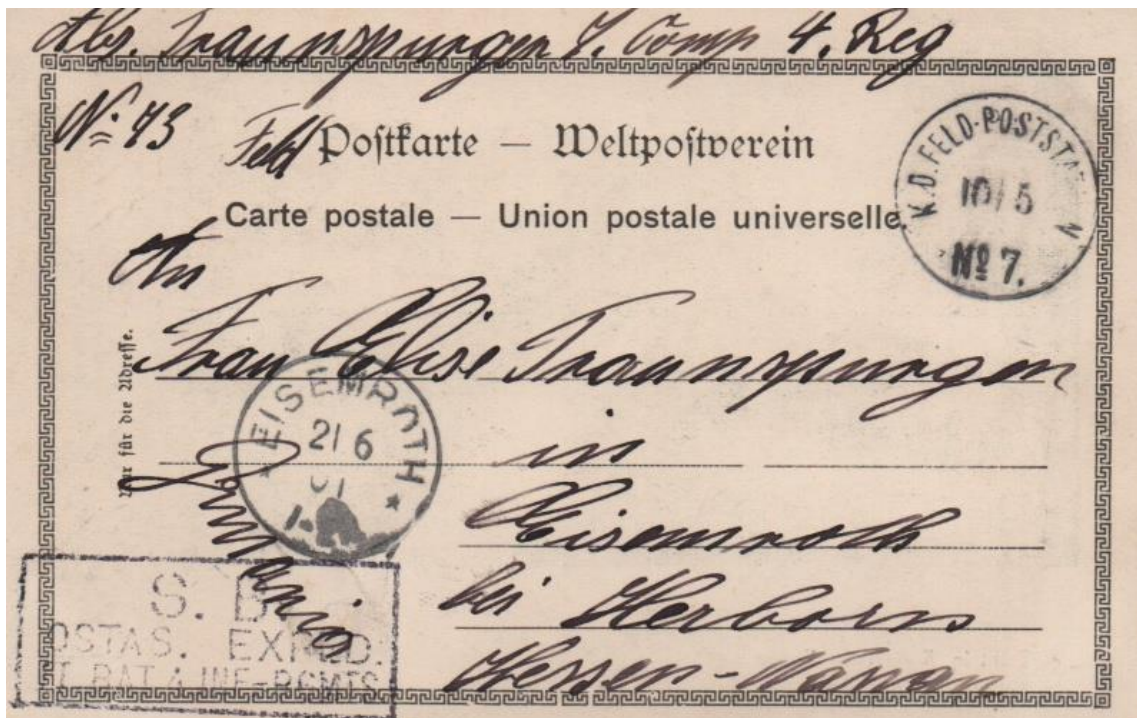 Abs. Traunspurgen 7. Comp 4. Reg
No 73
Feld Postkarte – Weltpostverein
Carte postale – Union postale universelle.
K.D. FELD-POSTSTATION
10/5
No 7.
An
Frau Elise Traunspurgen
in
Eisemroth
bei Herborn
Hessen-Nassau
Germania
Nur für die Adresse.
EISEMROTH
21 6
01
S. B.
POSTAS. EXPED.
BAT. 4 INF-RGMTS